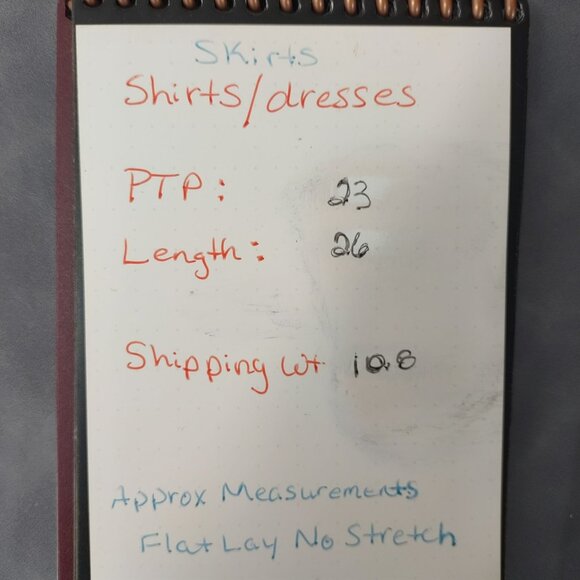 Skirts
Shirts/dresses
PTP: 23
Length: 26
Shipping Wt 10.8
Approx Measurements
Flat Lay No Stretch